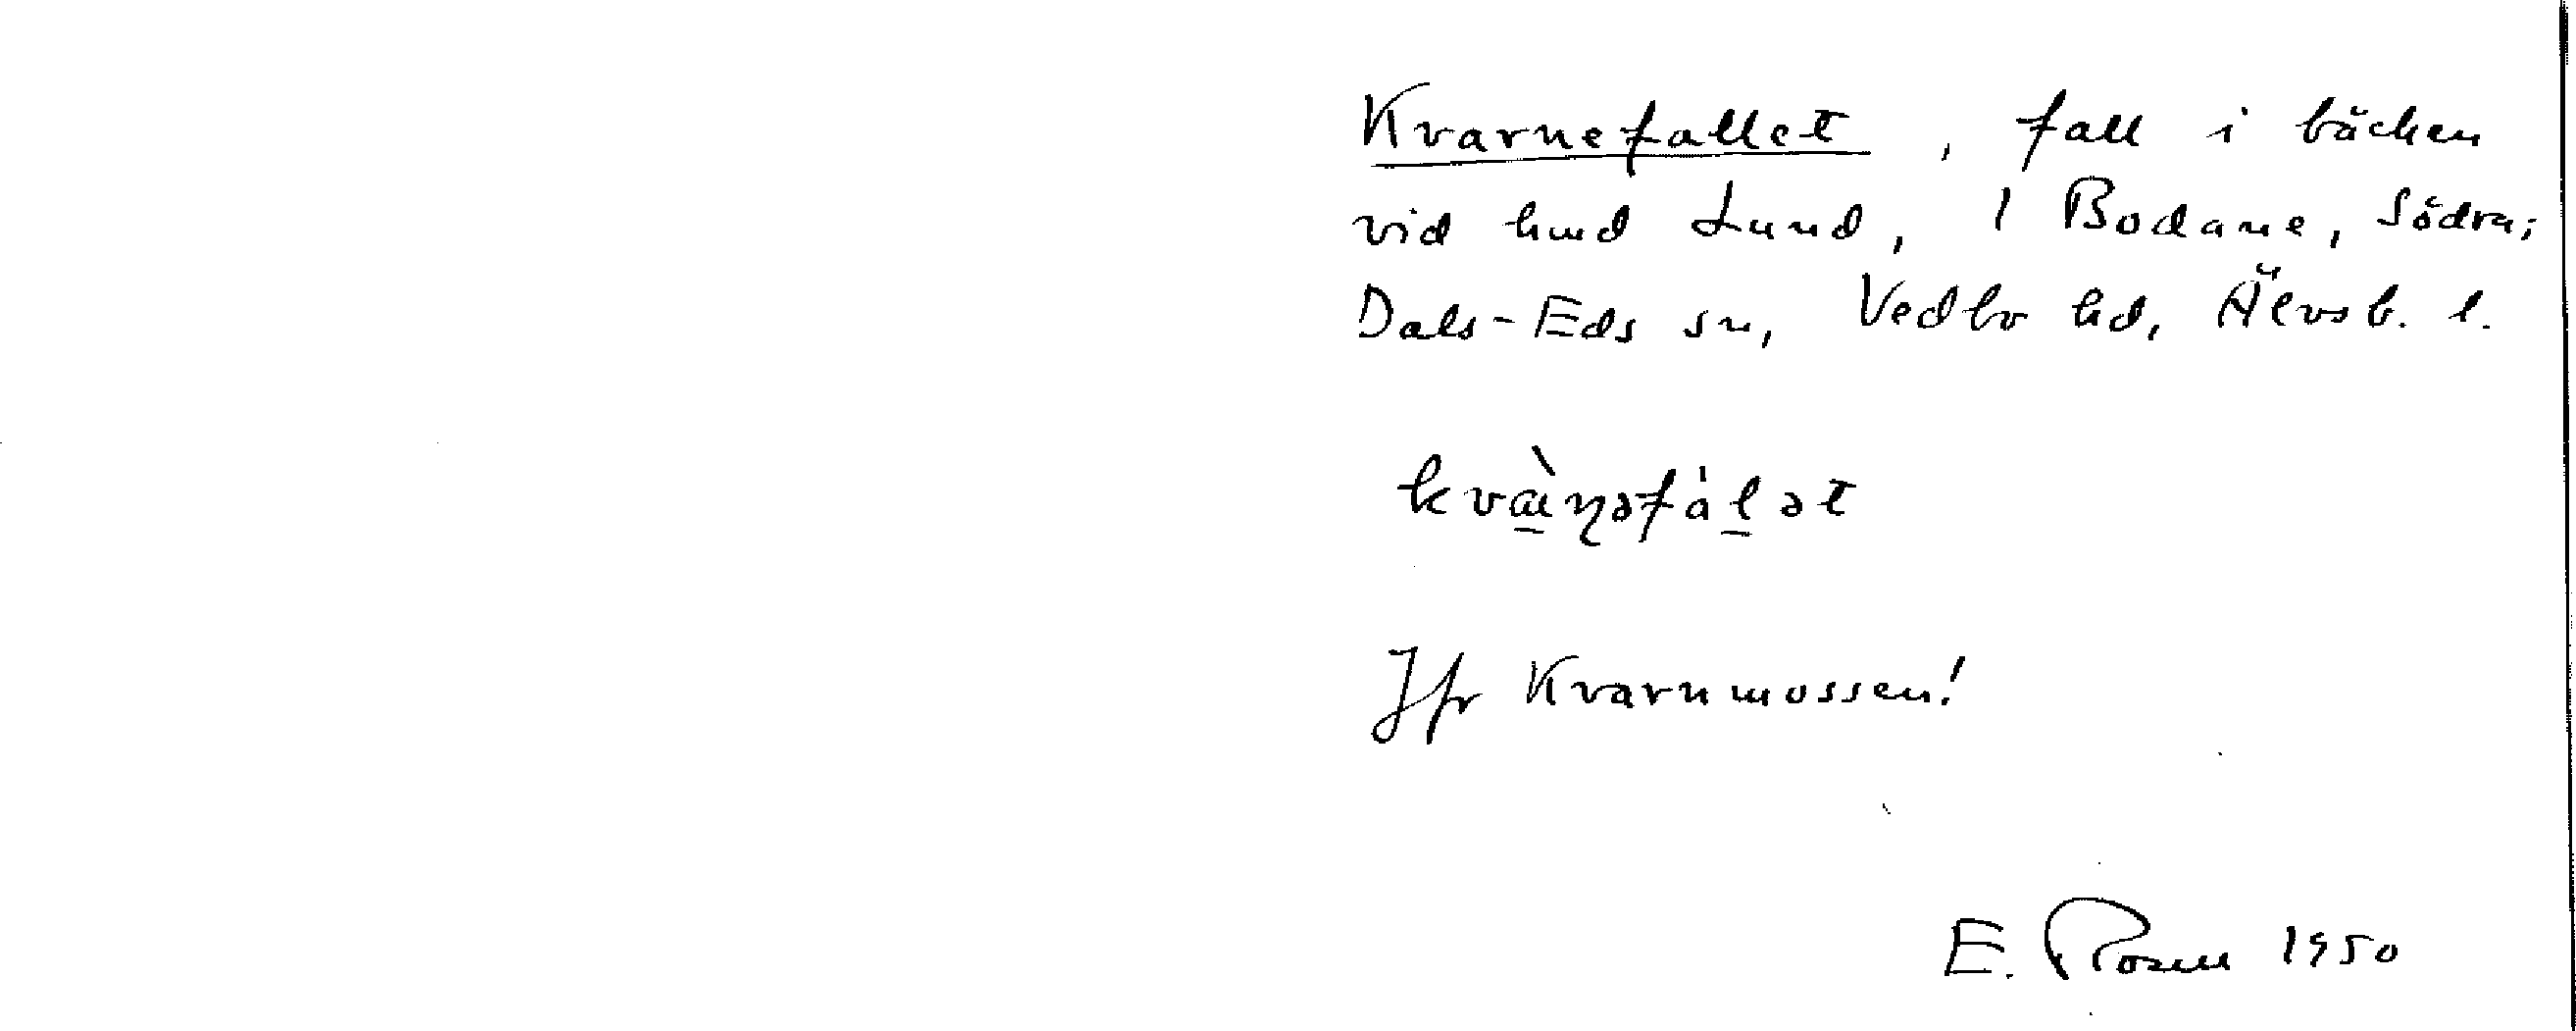 Kvarnefallet, fall i bäcken
vid hmd Lund, 1 Bodane, Södra;
Dals-Eds sn, Vedbo hd, Älvsb. l.
kvæ̀ɳəfàl̠ət
Jfr Kvarnmossen!
E. Rosell 1950